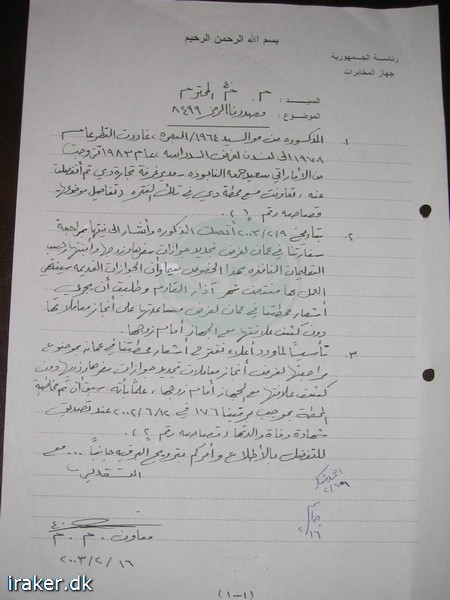 بسم الله الرحمن الرحيم
رئاسة الجمهورية
جهاز المخابرات
السيد : م . م٤٠ المحترم
الموضوع : مصدرنا الرمز ٨٤٩٩
١. المذكوره من مواليد ١٩٦٤/البصره، غادرت القطر عام
١٩٧٨ الى لندن لغرض الدراسه، عام ١٩٨٣ تزوجت
من الأماراتي سعيد جمعه النابوده مدير غرفة تجارة دبي ثم أنفصلت
عنه ، تعاونت مع محطة دبي في تلك الفتره (تفاصيل موضوعها
قصاصه رقم ١).
٢. بتاريخ ٢٠٠٣/٢/٩ أتصلت المذكوره وأشار الى نيتها مراجعة
سفارتنا في عمان لغرض تجديد جوازات سفرها وزوجها وأبنتها حسب
التعليمات النافذه بهذا الخصوص سيما وان الجوازات القديمه سينتهي
العمل بها منتصف شهر آذار القادم وطلبت أن يجري
أشعار محطتنا في عمان لغرض مساعدتها على أنجاز معاملاتها
دون كشف علاقتها مع الجهاز أمام زوجها.
٣. تأسيساً لما ورد أعلاه نقترح أشعار محطتنا في عمان بموضوع
مراجعتها لغرض أنجاز معاملات تجديد جوازات سفرها وزوجها دون
كشف علاقتها مع الجهاز أمام زوجها ، علماً بأنه سبق أن تم مخاطبة
المحطة بموجب برقيتنا ١٧٦ في ٢٠٠٢/٦/١٢ عند تصديق
شهادة وفاة والدتها (قصاصه رقم ٢).
للتفضل بالأطلاع وأمركم بترويج البرقيه جانباً ... مع
التقدير
معاون . م . م٤٠
٢٠٠٣/٢/١٦
٢/١٦
(١-١)
iraker.dk